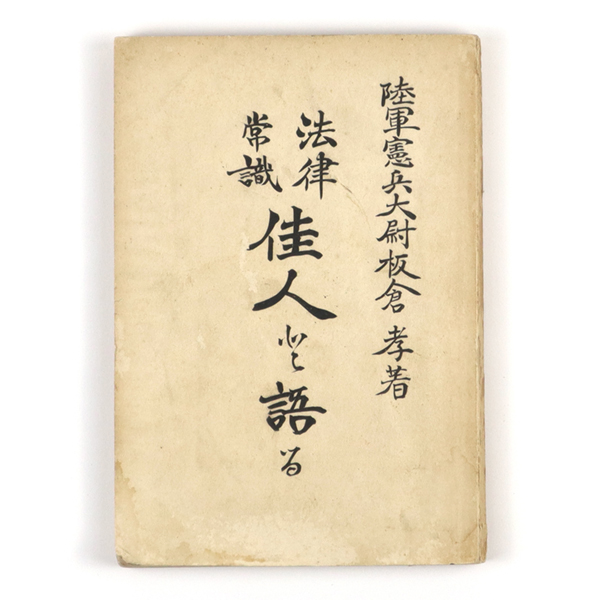 陸軍憲兵大尉板倉孝著
法律
常識
佳人と語る